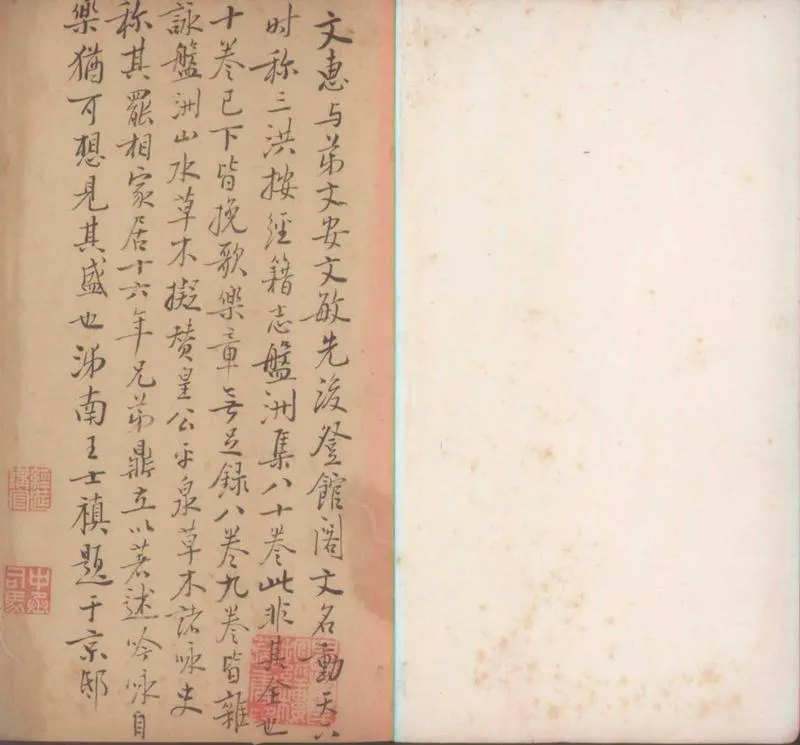 文惠与弟文安文敏先後登館阁文名動天下
时称三洪按經籍志盤洲集八十卷此非其全也
十卷已下皆挽歌樂章无足録八卷九卷皆雜
詠盤洲山水草木擬赞皇公平泉草木諸咏史
称其罷相家居十六年兄弟鼎立以著述吟咏自
樂猶可想見其盛也济南王士禛题于京邸